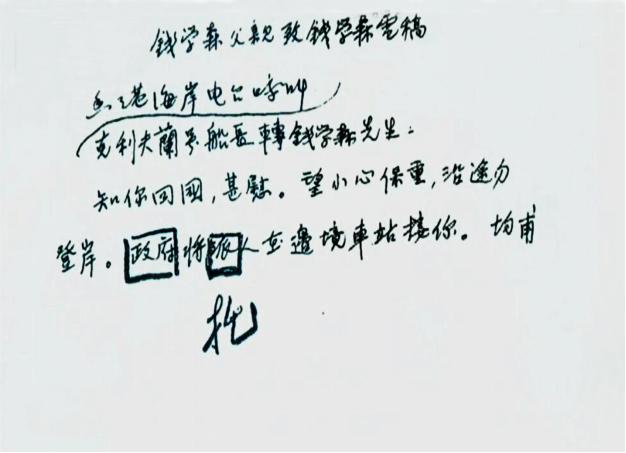 錢学森父親致錢学森電稿
香港海岸电台呼叫
克利夫蘭号船長轉錢学森先生:
知你回國,甚慰。望小心保重,沿途勿
登岸。政府将派人在邊境車站接你。均甫
托